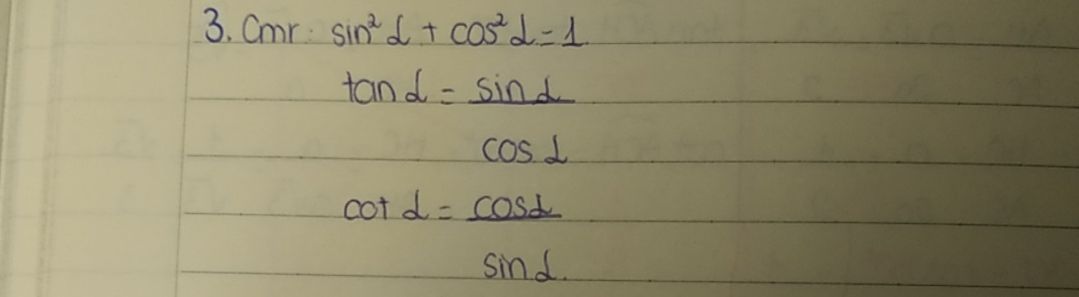 3. Cmr: sin²α + cos²α = 1
tan α = sin α
cos α
cot α = cos α
sin α.